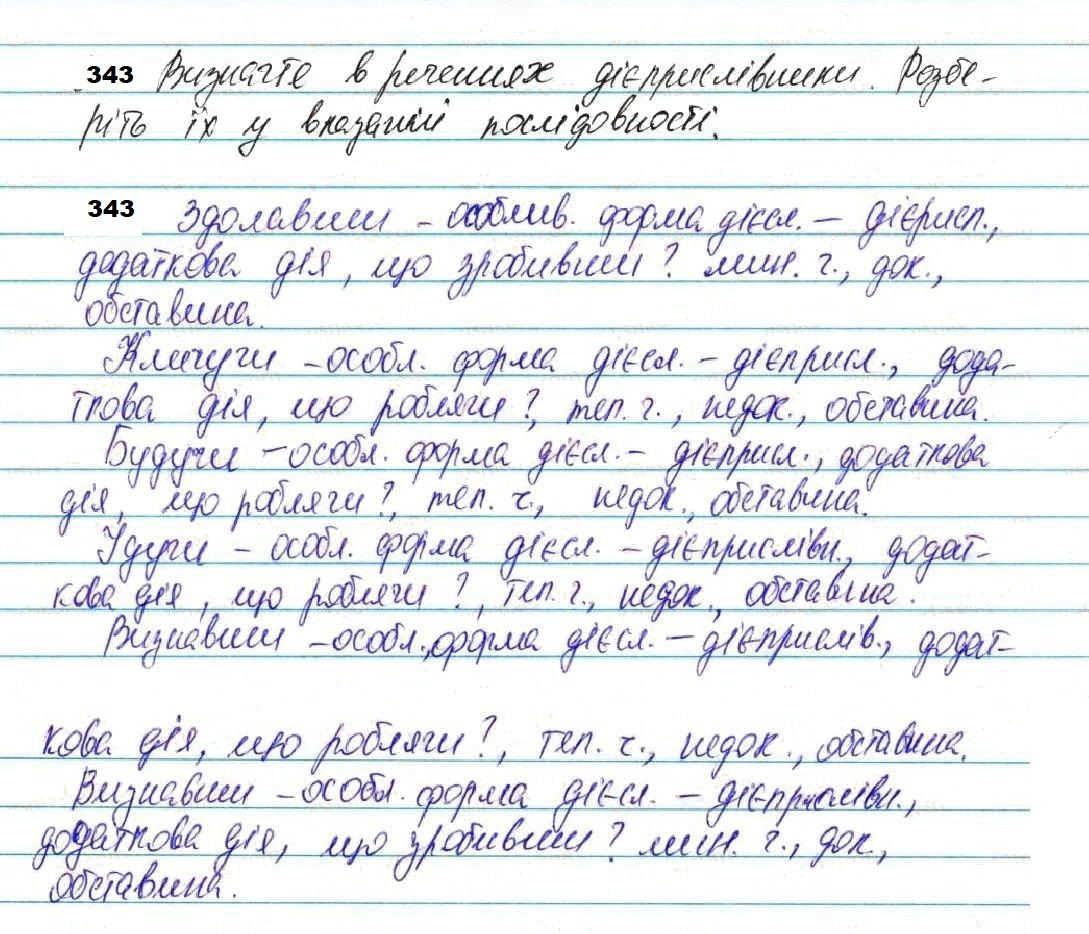 343 Визначте в реченнях дієприслівники. Розбе-
ріть їх у вказаній послідовності.
343 Здолавши – особлив. форма дієсл. – дієприсл.,
додаткова дія, що зробивши? мин. ч., док.,
обставина.
Кличучи – особл. форма дієсл. – дієприсл., дода-
ткова дія, що роблячи?, теп. ч., недок., обставина.
Будучи – особл. форма дієсл. – дієприсл., додаткова
дія, що роблячи?, теп. ч., недок., обставина.
Ідучи – особл. форма дієсл. – дієприслівн., додат-
кова дія, що роблячи?, теп. ч., недок., обставина.
Визнавши – особл. форма дієсл. – дієприслів., додат-
кова дія, що роблячи?, теп. ч., недок., обставина.
Визнавши – особл. форма дієсл. – дієприслівн.,
додаткова дія, що зробивши? мин. ч., док.,
обставина.